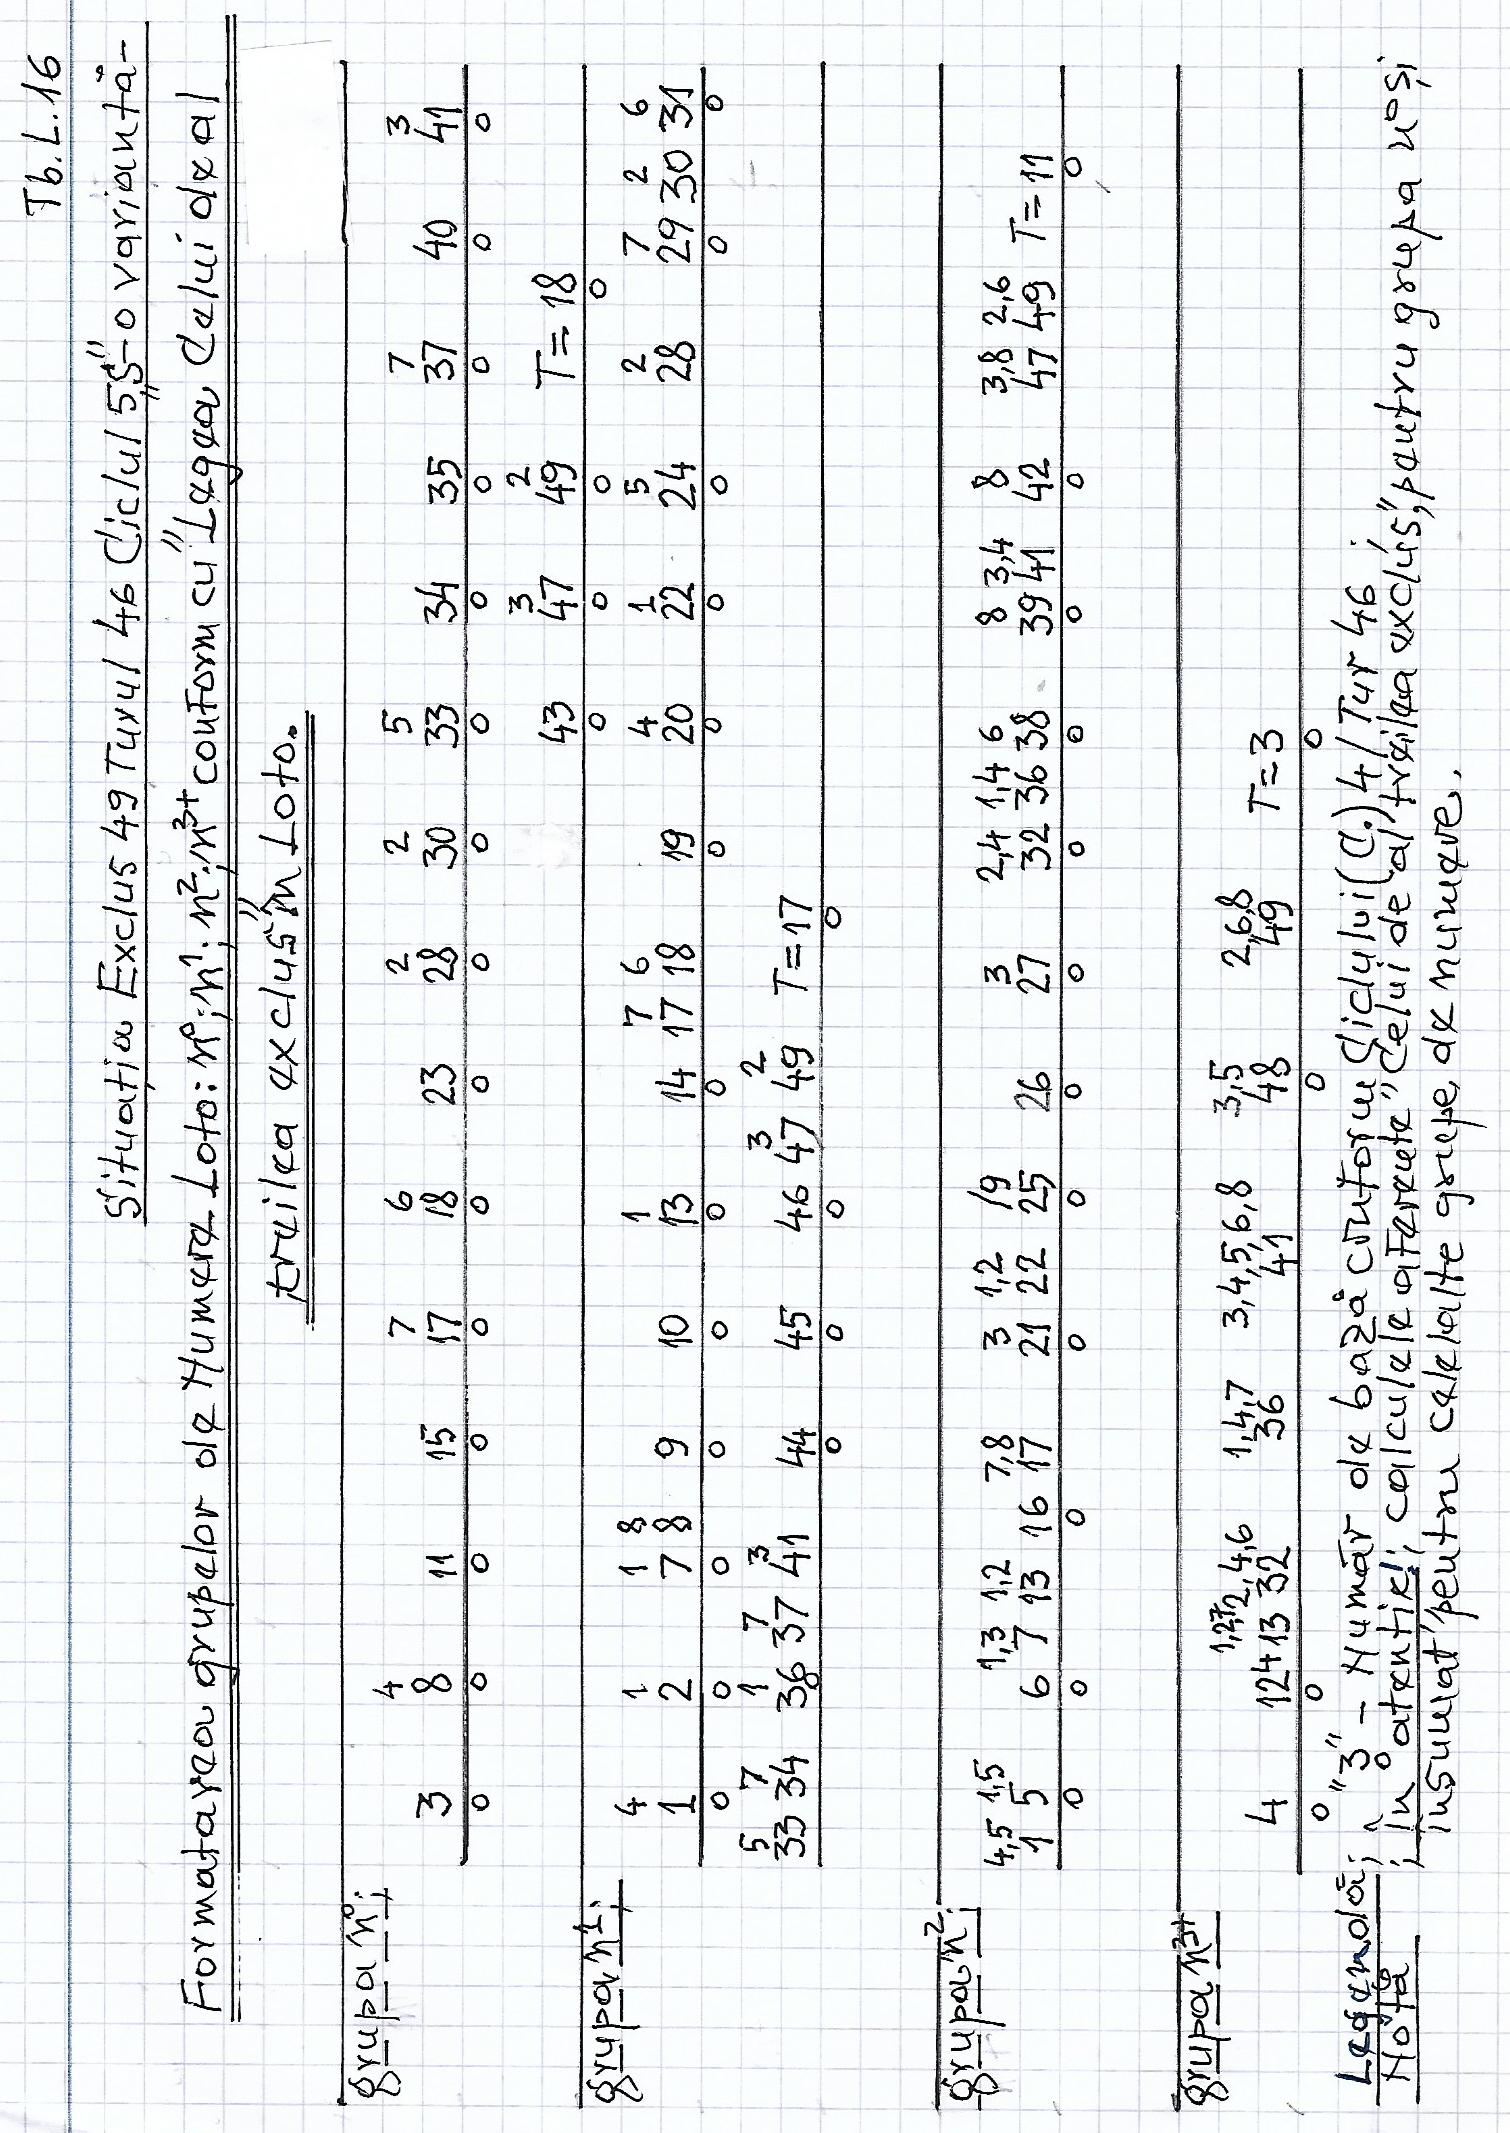 Tb.L.16
Situația Exclus 49 Turul 46 Ciclul 5,,S"-o variantă-
Formatarea grupelor de Numere Loto: n⁰; n¹; n²; n³⁺ conform cu "Legea Celui de al
treilea exclus" în Loto.
4 6 2 2 5 7 3
7
grupa n⁰; 3 8 11 15 17 18 23 28 30 33 34 35 37 40 41
0 0 0 0 0 0 0 0 0 0 0 0 0 0 0
3 2
43 47 49 T=18
0 0 0 0
4 1 1 8 1 7 6 4 1 5 2 7 2 6
grupa n¹; 1 2 7 8 9 10 13 14 17 18 19 20 22 24 28 29 30 31
0 0 0 0 0 0 0 0 0 0 0 0 0 0
5 7 1 7 3 3 2
33 34 36 37 41 44 45 46 47 49 T=17
0 0 0 0 0
4,5 1,5 1,3 1,2 7,8 3 1,2 /9 3 2,4 1,4 6 8 3,4 8 3,8 2,6
grupa n²; 1 5 6 7 13 16 17 21 22 25 26 27 32 36 38 39 41 42 47 49 T=11
0 0 0 0 0 0 0 0 0 0 0 0
1,2,7 2,4,6 1,4,7 3,4,5,6,8 3,5 2,6,8
grupa n³⁺ 4 12 4 13 32 36 41 48 49 T=3
0 0 0 0
Legendă; "3" - Număr de bază conform Ciclului (C.) 4/Tur 46
0
Notă ; în atenție!; calculele aferente "Celui de al treilea exclus", pentru grupa n⁰ și
însumat pentru celelalte grupe, de numere.